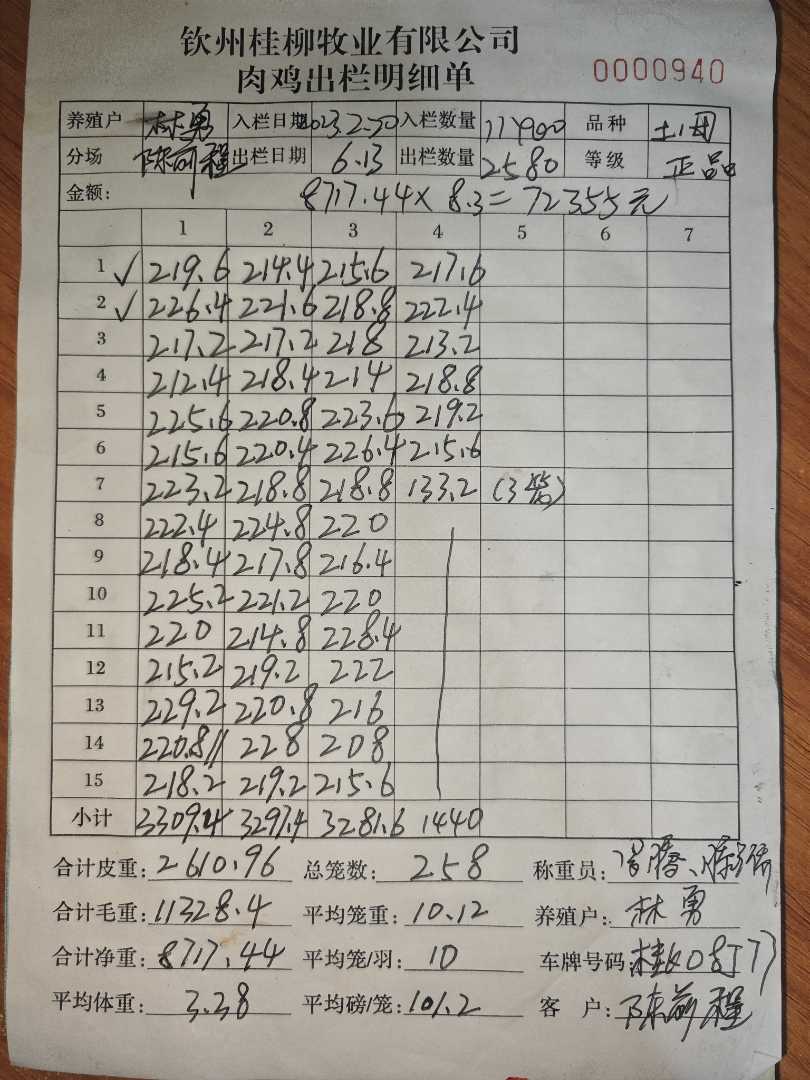 钦州桂柳牧业有限公司
肉鸡出栏明细单 0000940
养殖户 林勇 入栏日期 2023.2-20 入栏数量 品种 土1母
分场 陈前程 出栏日期 6.13 出栏数量 2580 等级 正品
金额: 8717.44×8.3=72355元
1 2 3 4 5 6 7
1 ✓ 219.6 214.4 215.6 217.6
2 ✓ 226.4 221.6 218.8 222.4
3 217.2 217.2 218 213.2
4 212.4 218.4 214 218.8
5 225.6 220.8 223.6 219.2
6 215.6 220.4 226.4 215.6
7 223.2 218.8 218.8 133.2 (3笼)
8 222.4 224.8 220
9 218.4 217.8 216.4
10 225.2 221.2 220
11 220 214.8 228.4
12 215.2 219.2 222
13 229.2 220.8 216
14 220.8 228 208
15 218.2 219.2 215.6
小计 3309.4 3297.4 3281.6 1440
合计皮重: 2610.96 总笼数: 258 称重员:
合计毛重: 11328.4 平均笼重: 10.12 养殖户: 林勇
合计净重: 8717.44 平均笼/羽: 10 车牌号码:
平均体重: 3.38 平均磅/笼: 101.2 客户: 陈前程